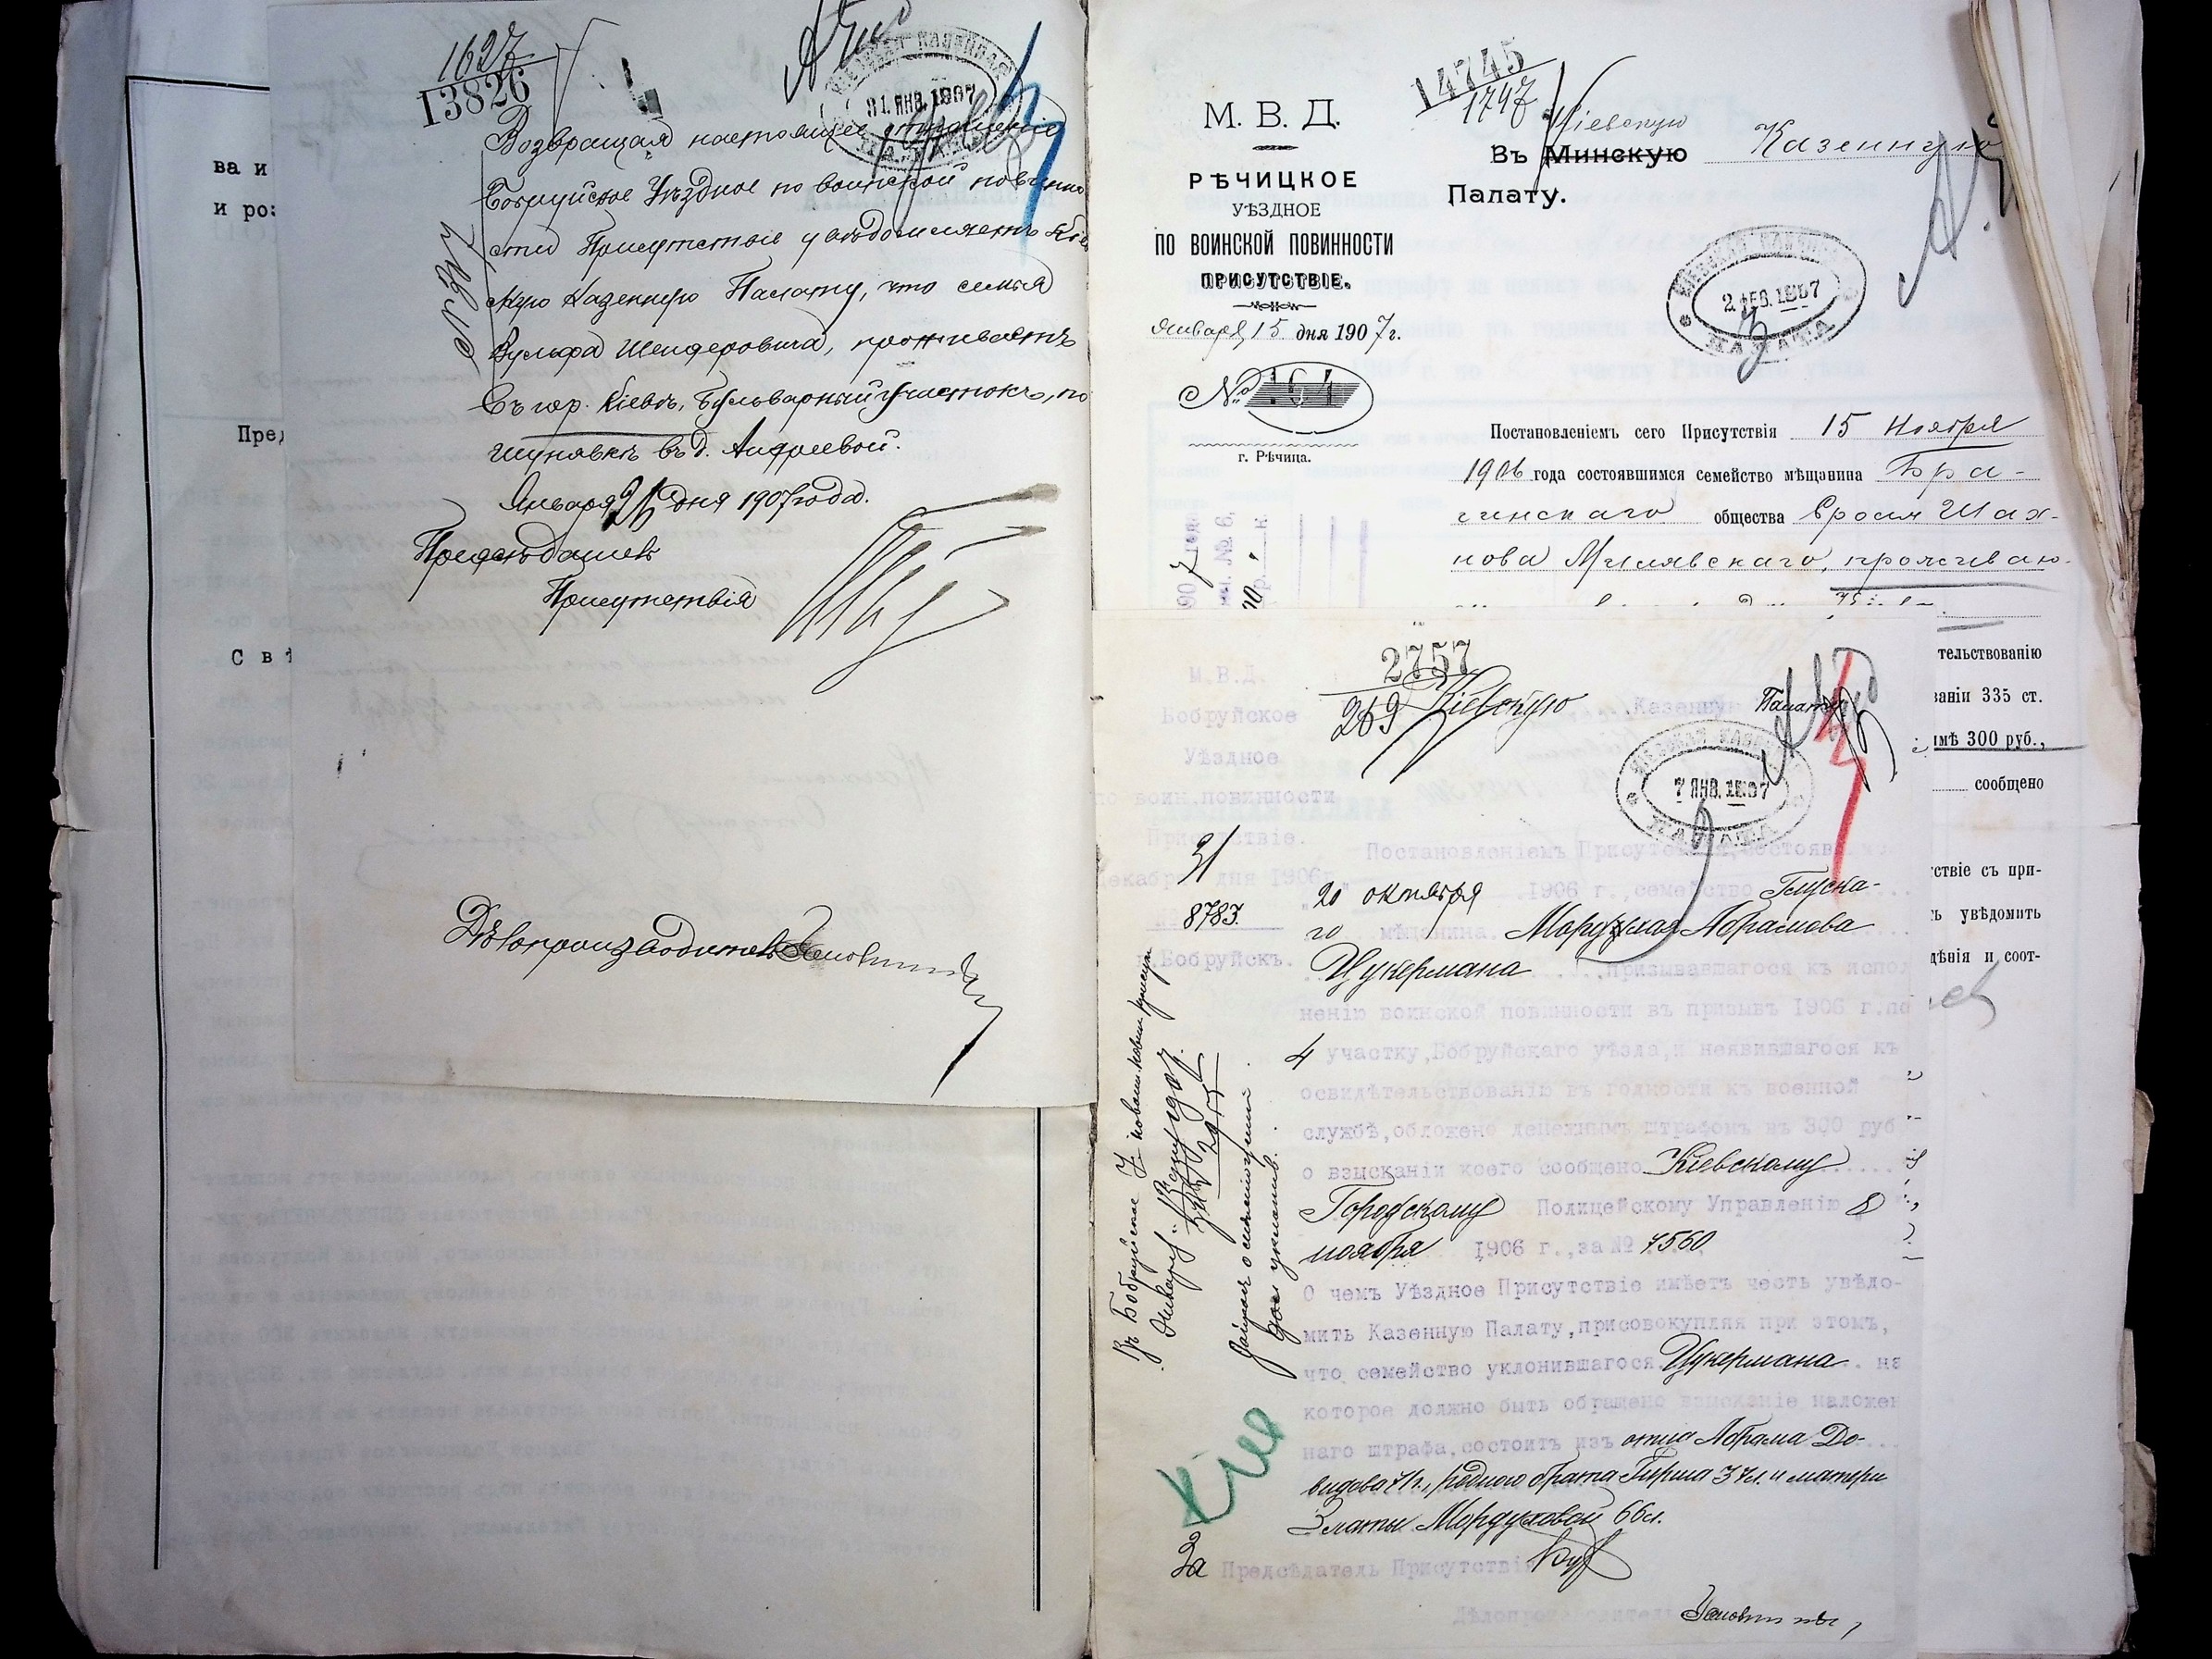 ва и
и роз
Пред
Свѣ
1627
13826
КІЕВСКАЯ КАЗЕННАЯ
31 ЯНВ. 1907
ПАЛАТА
Возвращая настоящее отношеніе
Бобруйское Уѣздное по воинской повинно
сти Присутствіе увѣдомляетъ Кіев
скую Казенную Палату, что семья
Вульфа Шендеровича, проживаетъ
въ гор. Кіевѣ, Бульварный участокъ, по
Шулявкѣ въ д. Андреевой.
Января 26 дня 1907 года.
Предсѣдатель
Присутствія
Дѣлопроизводитель
14745
1747
М. В. Д.
РѢЧИЦКОЕ
УѢЗДНОЕ
ПО ВОИНСКОЙ ПОВИННОСТИ
ПРИСУТСТВІЕ.
Января 15 дня 1907 г.
№ 164
г. Рѣчица.
Кіевскую
Въ Минскую Казенную
Палату.
КІЕВСКАЯ КАЗЕННАЯ
2 ФЕВ. 1907
ПАЛАТА
Постановленіемъ сего Присутствія 15 Ноября
1906 года состоявшимся семейство мѣщанина Бра-
гинскаго общества Сроля Шах-
нова Милявскаго, проживаю-
тельствованію
ваніи 335 ст.
имѣ 300 руб.,
сообщено
ствіе съ при-
ъ увѣдомить
дѣнія и соот-
2757
269
Кіевскую Казенную Палату
М.В.Д.
Бобруйское
Уѣздное
по воин.повинности
Присутствіе.
Декабря 31 дня 1906г.
8783.
г.Бобруйскъ.
КІЕВСКАЯ КАЗЕННАЯ
7 ЯНВ. 1907
ПАЛАТА
Постановленіемъ Присутствія, состояв
20 октября 1906 г., семейство Глуска-
го мѣщанина Мордуха Абрамова
Цукермана призывавшагося къ испол
ненію воинской повинности въ призывъ 1906 г.по
4 участку,Бобруйскаго уѣзда,и неявившагося къ
освидѣтельствованію въ годности къ военной
службѣ,обложено денежнымъ штрафомъ въ 300 руб
о взысканіи коего сообщено Кіевскому
Городскому Полицейскому Управленію 8
ноября 1906 г.,за № 7560
О чемъ Уѣздное Присутствіе имѣетъ честь увѣдо-
мить Казенную Палату,присовокупляя при этомъ,
что семейство уклонившагося Цукермана на
которое должно быть обращено взысканіе наложен
наго штрафа,состоитъ изъ отца Абрама До-
видова 71 л., родного брата Гирша 37 л. и матери
Златы Мордуховой 66 л.
За Предсѣдатель Присутствія
Дѣлопроизводитель
Въ Бобруйское У. по воин. повин. присутст
Января 12 дня 1907 г.
№ 2955